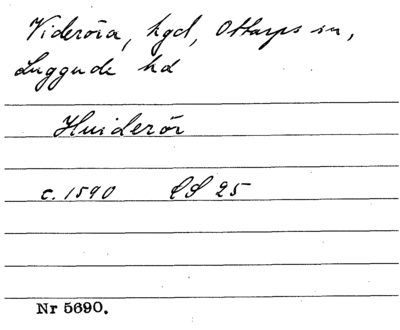 Videröra, hgd, Ottarps sn,
Luggude hd
Huiderör
c. 1590 LS 25
Nr 5690.